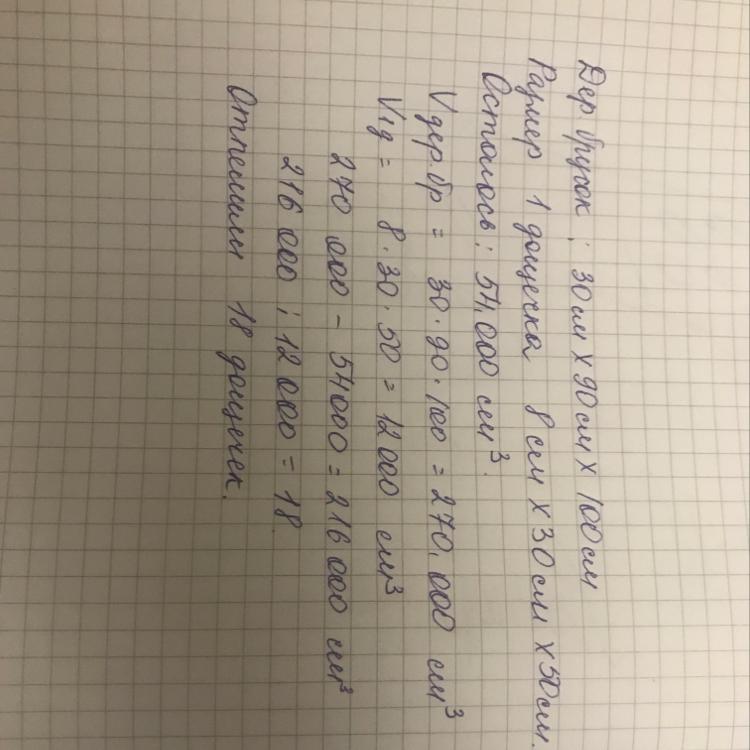 Дер. брусок : 30 см х 90 см х 100 см
Размер 1 дощечки 8 см х 30 см х 50 см.
Осталось : 54.000 см³.
V дер. бр = 30 · 90 · 100 = 270.000 см³
V 1д = 8 · 30 · 50 = 12 000 см³
270 000 - 54000 = 216 000 см³
216 000 : 12 000 = 18.
Отпилили 18 дощечек.